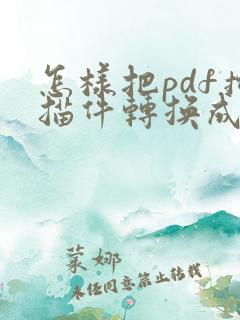 怎樣把pdf掃
描件轉換成
菜娜
未經同意禁止轉載